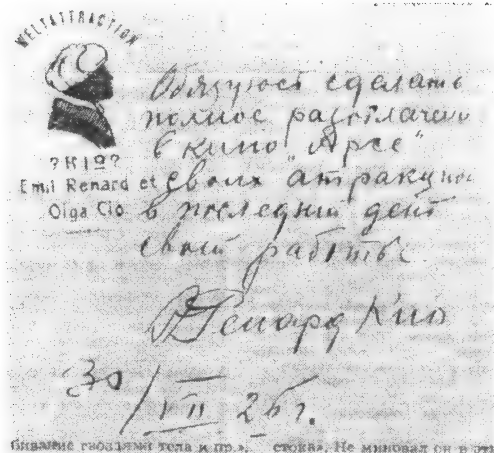 WELTATTRACTION
?КІО?
Emil Renard et
Olga Cio
Обязуюсь сделать
полное разоблачение
в кино "Арсе"
своих атракцион
в последний день
своей работы
Э Ренард Кио
30/VII 26 г.
бивание гвоздями тела и пр.».
стока». Не миновал он и эти